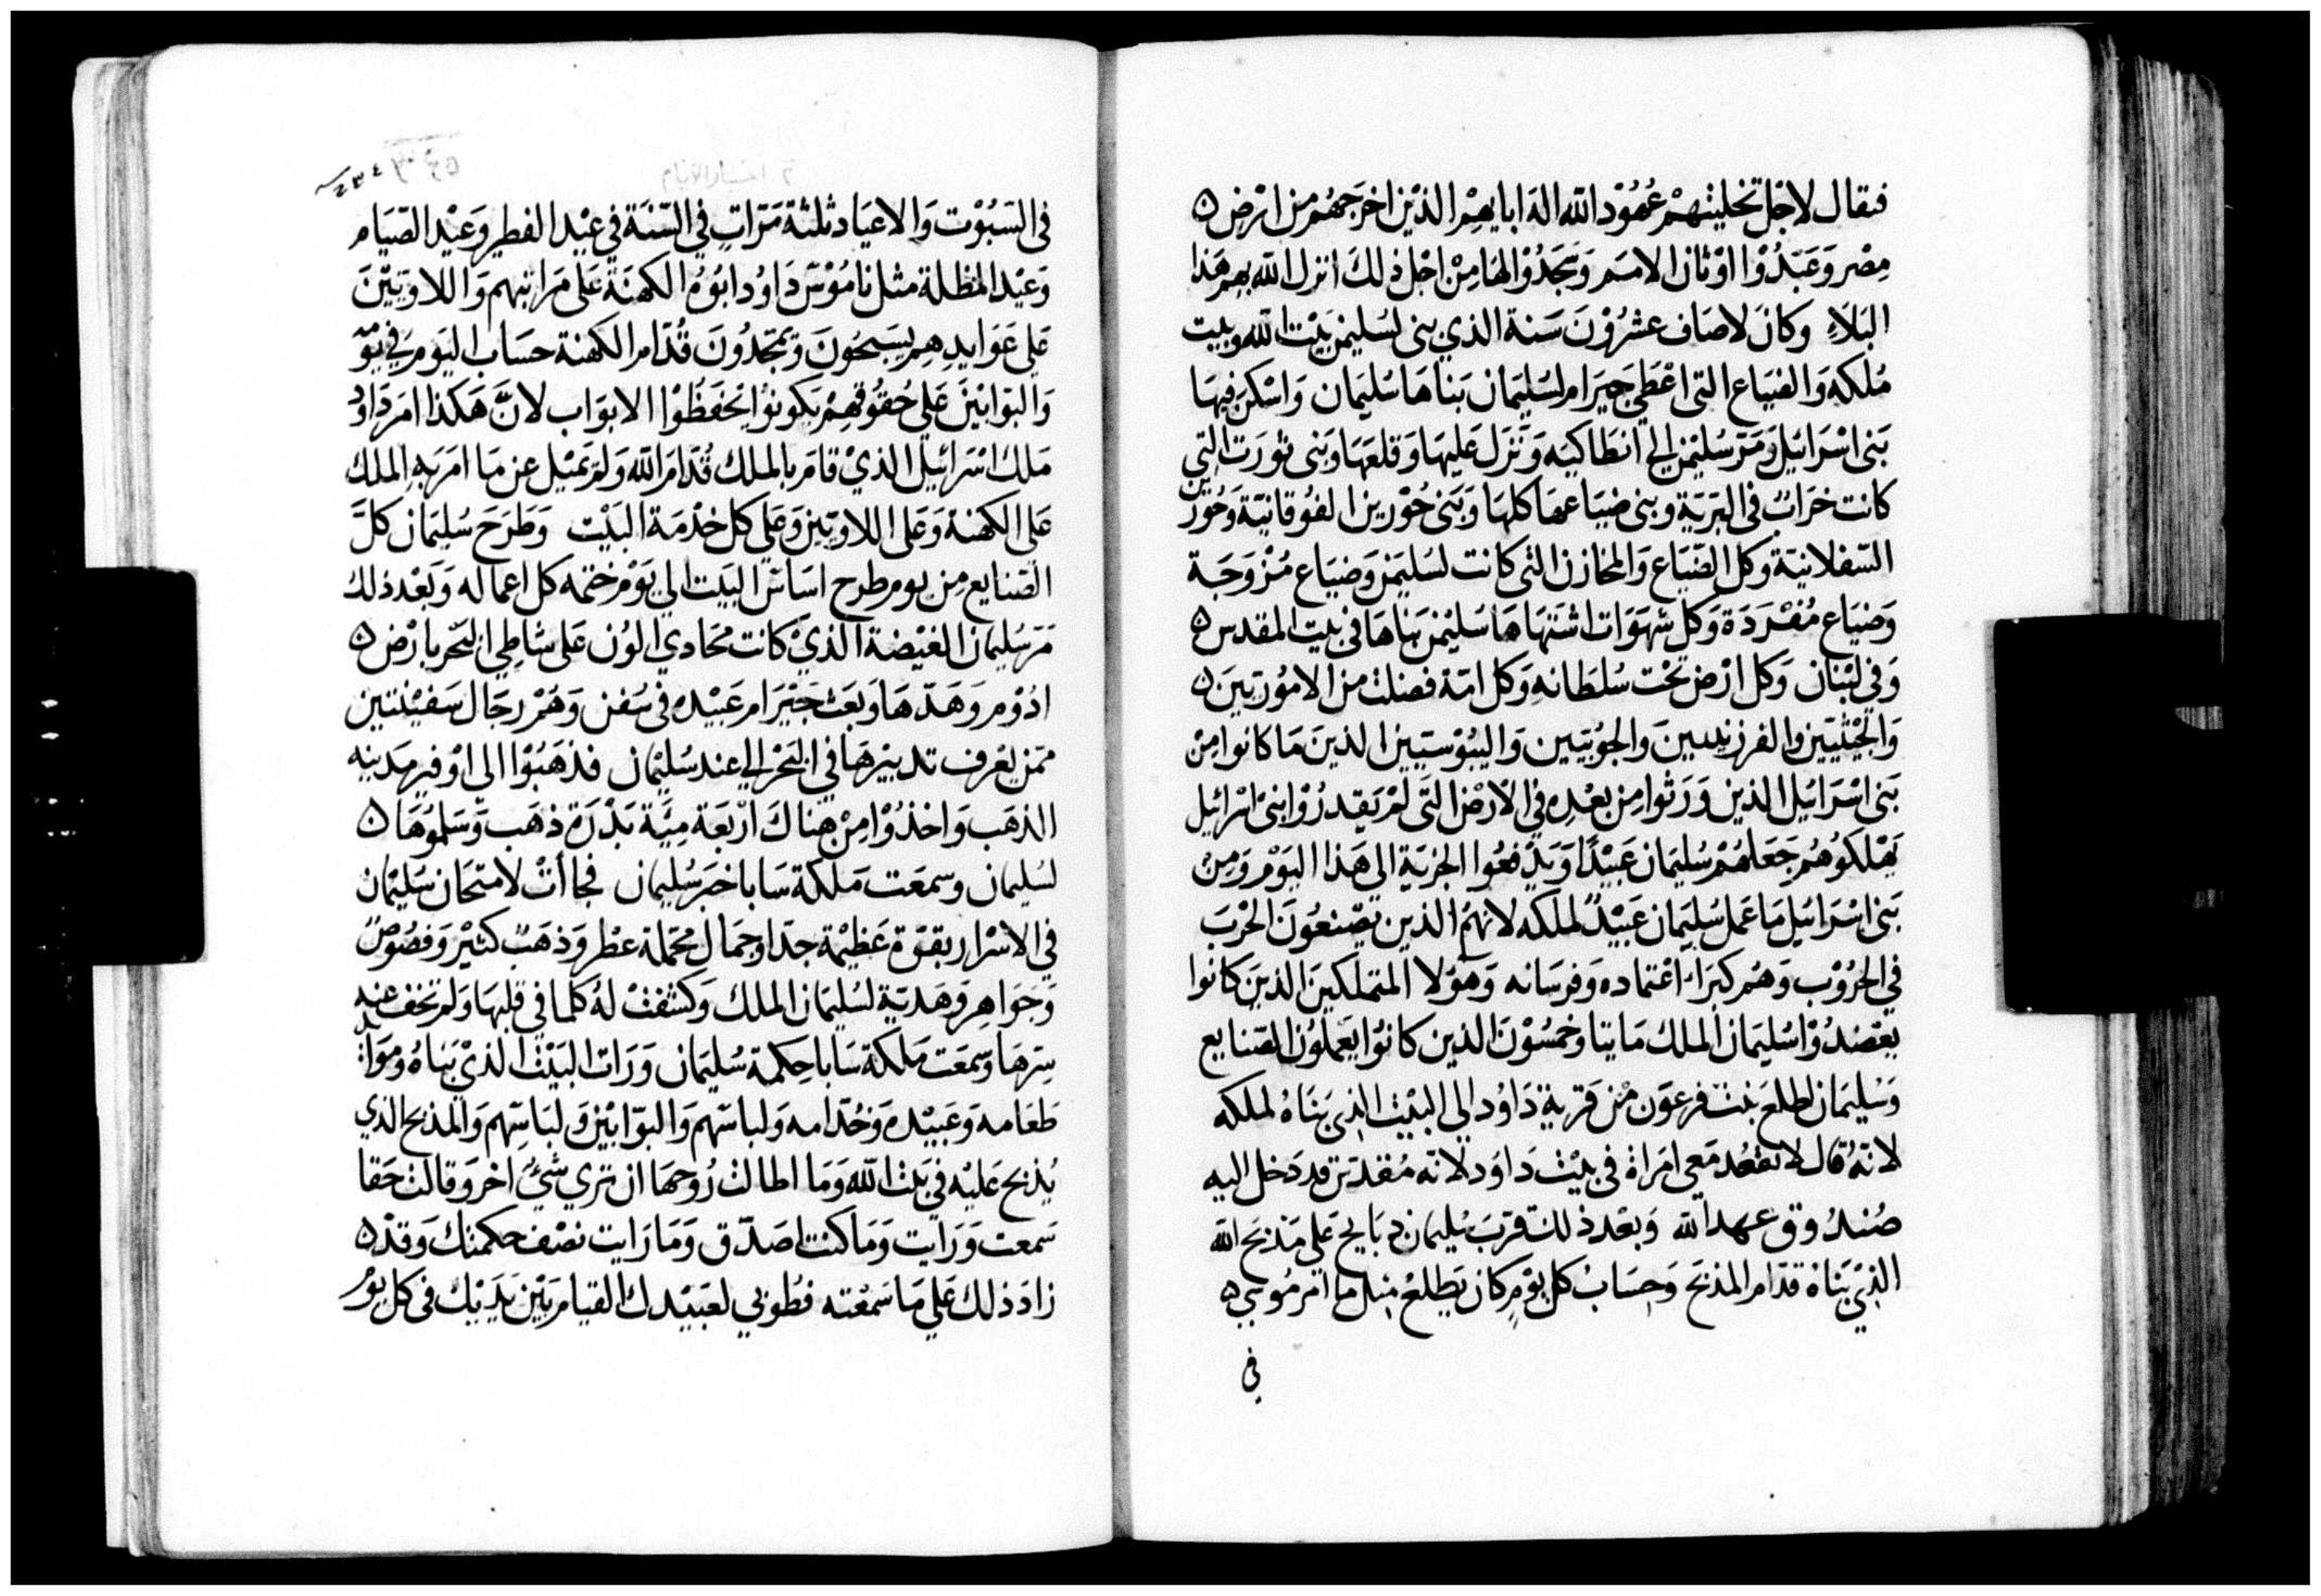 فيقال لاجل تخليتهم عُهُوْد الله اله ابايهم الذين اخرجهم من ارض
مصر وَعَبَدُوْا اوْثان الامم وَسَجَدُوْا لهَا مِنْ اجْل ذلكَ انزل الله بهم هَذا
البَلَاءِ وكانَ لاصَاف عشرُوْنَ سَنة الذي بنى سُليمن بَيْت الله وبيت
مُلكه وَالضيَاع التى اعْطى حِيرَام لسُليمَان بَناهَا سُليمَان وَاسْكن فيهَا
بَنى اسْرَائيل وَمَرّ سُليمَن الى انطاكيَه وَنَزل عَليهَا وَقلعَهَا وَبنى تُورَت التى
كانت خرَابٌ فى البَرّيَّة وبنى ضيَاعهَا كلهَا وَبَنى حُوْرين الفُوقانيَّة وَحُوْرين
السّفلانيّة وكل الضّيَاع وَالمخازن التى كانت لسُليمَن وَضيَاع مُزْوَجَة
وَضيَاع مُفْرَدَة وَكل شهَوَات اشتهَاهَا سُليْمَن بَناهَا فى بيت المقدس
وَفى لبْنان وَكل ارْض تحْت سُلطَانهِ وَكل امّة فضلت من الامُوْريّينَ
وَالحِيْثيّين والفرزيّين والحِوْيّين وَاليبُوْسيّين الذينَ مَا كانوا مِنْ
بَنى اسْرَائيل الذين وَرَثوا مِن بعْدِه فى الارْض التى لمْ يَقدرُوْا بنى اسْرَائيل
يَهْلكوْهُم جَعَلهُمْ سُليمَان عَبيْدًا وَيَدْفعُوا الجزيَة الى هَذا اليَوْم وَمِنْ
بَنى اسْرَائيل مَا عَمل سُليمَان عَبيْدٌ لملكه لانهُمُ الذين يَصْنعُونَ الحْربَ
في الحُرُوْب وَهُم كبرَاءُ اعْتماده وَفرسَانه وَهَوْلا المتملكينَ الذينَ كانوا
يَعْضدُوْا سُليمَان الملك مَايتا وخمسُوْنَ الذين كانوْا يَعَملوُن الصّنايع
وَسُليمَان اطلعَ بنت فرعَوْن منْ قريَة دَاوُد الى البيْت الذي بَنَاهُ لملكه
لانّهُ قال لا تقعُد مَعى امْرَاة فى بيْت دَاوُد لانّه مُقدّس قد دَخل اليه
صُندُوق عهد الله وَبعْد ذلكَ قرّبَ سُليمان ذبَايح عَلى مَذبَح الله
الذيْ بَنَاهُ قدّام المذبَح وَحِسَابُ كل يوْمٍ كان يَطلعْ مثل مَا امَر مُوسى
فى
٢ اخبار الايام
٢٣٤
فى السّبُوْت وَالاعيَاد ثلثة مَرّاتٍ في السّنَة في عيْد الفطير وَعيْد الصّيَام
وَعيْد المظلة مثل نامُوْس دَاوُد ابُوْهُ الكهنَة عَلى مَرَاتبهم وَاللاويّيْنَ
عَلى عَوَايدهِم يسَبحُونَ وَيمَجّدُونَ قُدّام الكهنة حسَاب اليَوم في يَوْمه
وَالبوّابيْنَ عَلى حُقوْقهم يَكونوْا يَحْفَظُوْا الابوَاب لانَّ هَكذا امَر دَاوُد
مَلك اسْرَائيل الذيْ قام بالملك قُدّام الله وَلم يَميْل عن مَا امَر بَه الملك
عَلى الكهنة وَعَلى اللاويّين وَعَلى كل خدْمَة البَيْت وَطرَحَ سُليمَان كلَّ
الصّنايع مِن يوم طرح اسَاس البَيت الى يَوْم ختمه كل اعماله وَبَعْد ذلك
مَرّ سُليمان الغيْضة الّذيْ كانت محَاديْ الوُن عَلى شاطِي البَحر بارْض
ادُوْم وَهَدّهَا وَبَعَث حَيْرَام عَبيْده فى سُفن وَهُمْ رجَال سَفيْنتين
ممّن يَعْرف تدبيْرهَا في البَحْر الى عند سُليمَان فذهَبُوْا الى اوْفير مَدينه
الذهَب وَاخذُوْا مِنْ هناكَ ارْبَعَة ميّة بَدْرَة ذهَب وَسَلموُهَا
لسُليمان وسمعَت مَلكة سَابا خبَر سُليمان فجاأتْ لامتحَان سُليمان
في الاسْرَار بقوّة عَظيْمة جدّا وجمَال محَملة عطْر وَذهَبٌ كثيْر وَفصُوصٌ
وَجَوَاهِر وَهَديّة لسُليمَان الملك وَكشفتْ لهُ كلما فى قلبهَا وَلم تخفَ عنه
سِرّهَا وسَمعَت مَلكة سَابا حِكمة سُليمَان وَرَات البَيْت الذيْ بَناهُ وَمَوَايد
طعَامه وَعَبيْده وَخُدّامه وَلباسَهم وَالبوّابيْن وَلبَاسِهم وَالمذبح الذي
يُذبَح عَليْه في بَيْت الله وَمَا اطالت رُوحهَا ان ترى شيْءٌ اخر وَقالت حَقا
سَمعت وَرَايت وَمَا كنت اصَدّق وَمَا رَايت نصْف حكمتك وَقدْ
زادَ ذلك عَلى مَا سَمعْته فطوبي لعَبيْدك القيام بَيْن يَدَيْك فى كل يوْم